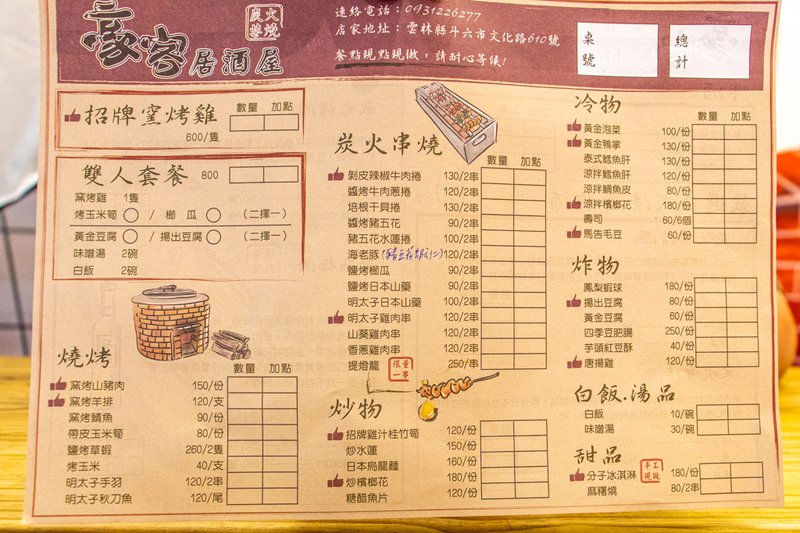 豪客居酒屋
炭火
夢燒
連絡電話：0931226277
居家地址：雲林縣斗六市文化路610號
餐點現點現做，請耐心等候!
桌號
總計
招牌窯烤雞
數量 加點
600/隻
雙人套餐 800
窯烤雞 1隻
烤玉米筍 ○ / 櫛瓜 ○ (二擇一)
黃金豆腐 ○ / 揚出豆腐 ○ (二擇一)
味噌湯 2碗
白飯 2碗
燒烤
數量 加點
窯烤山豬肉 150/份
窯烤羊排 120/支
窯烤鯖魚 90/份
帶皮玉米筍 80/份
鹽烤草蝦 260/2隻
烤玉米 40/支
明太子手羽 120/份
明太子秋刀魚 120/尾
炭火串燒
數量 加點
剝皮辣椒牛肉捲 130/2串
醬烤牛肉蔥捲 120/2串
培根干貝捲 130/2串
醬烤豬五花 90/2串
豬五花水蓮捲 100/2串
海老豚(豬五花蝦仁) 120/2串
鹽烤櫛瓜 90/2串
鹽烤日本山藥 90/2串
明太子日本山藥 100/2串
明太子雞肉串 120/2串
山葵雞肉串 120/2串
香蔥雞肉串 120/2串
提燈籠 250/串
限量
一串
炒物
數量 加點
招牌雞汁桂竹筍 120/份
炒水蓮 150/份
日本烏龍麵 160/份
炒檳榔花 180/份
糖醋魚片 120/份
冷物
數量 加點
黃金泡菜 100/份
黃金鴨掌 130/份
泰式鱈魚肝 120/份
涼拌鱈魚肝 120/份
涼拌鯛魚皮 80/份
涼拌檳榔花 180/份
壽司 60/6個
馬告毛豆 60/份
炸物
數量 加點
鳳梨蝦球 180/份
揚出豆腐 80/份
黃金豆腐 60/份
四季豆肥腸 250/份
芋頭紅豆酥 40/份
唐揚雞 120/份
白飯.湯品
數量 加點
白飯 10/碗
味噌湯 30/碗
甜品
手工
現做
數量 加點
分子冰淇淋 180/份
麻糬燒 80/2串